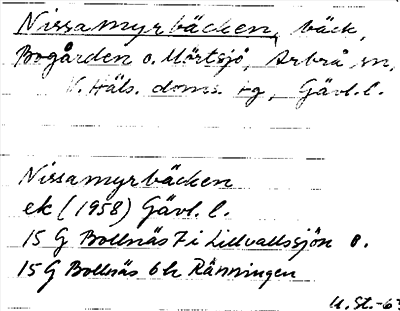 Nissamyrbäcken, bäck,
Bogården o. Mörtsjö, Arbrå sn,
N. Häls. doms. tg, Gävl. l.
Nissamyrbäcken
ek (1958) Gävl. l.
15 G Bollnäs 7 i Lillvallssjön o.
15 G Bollnäs 6 h Ränningen
U. St. -63